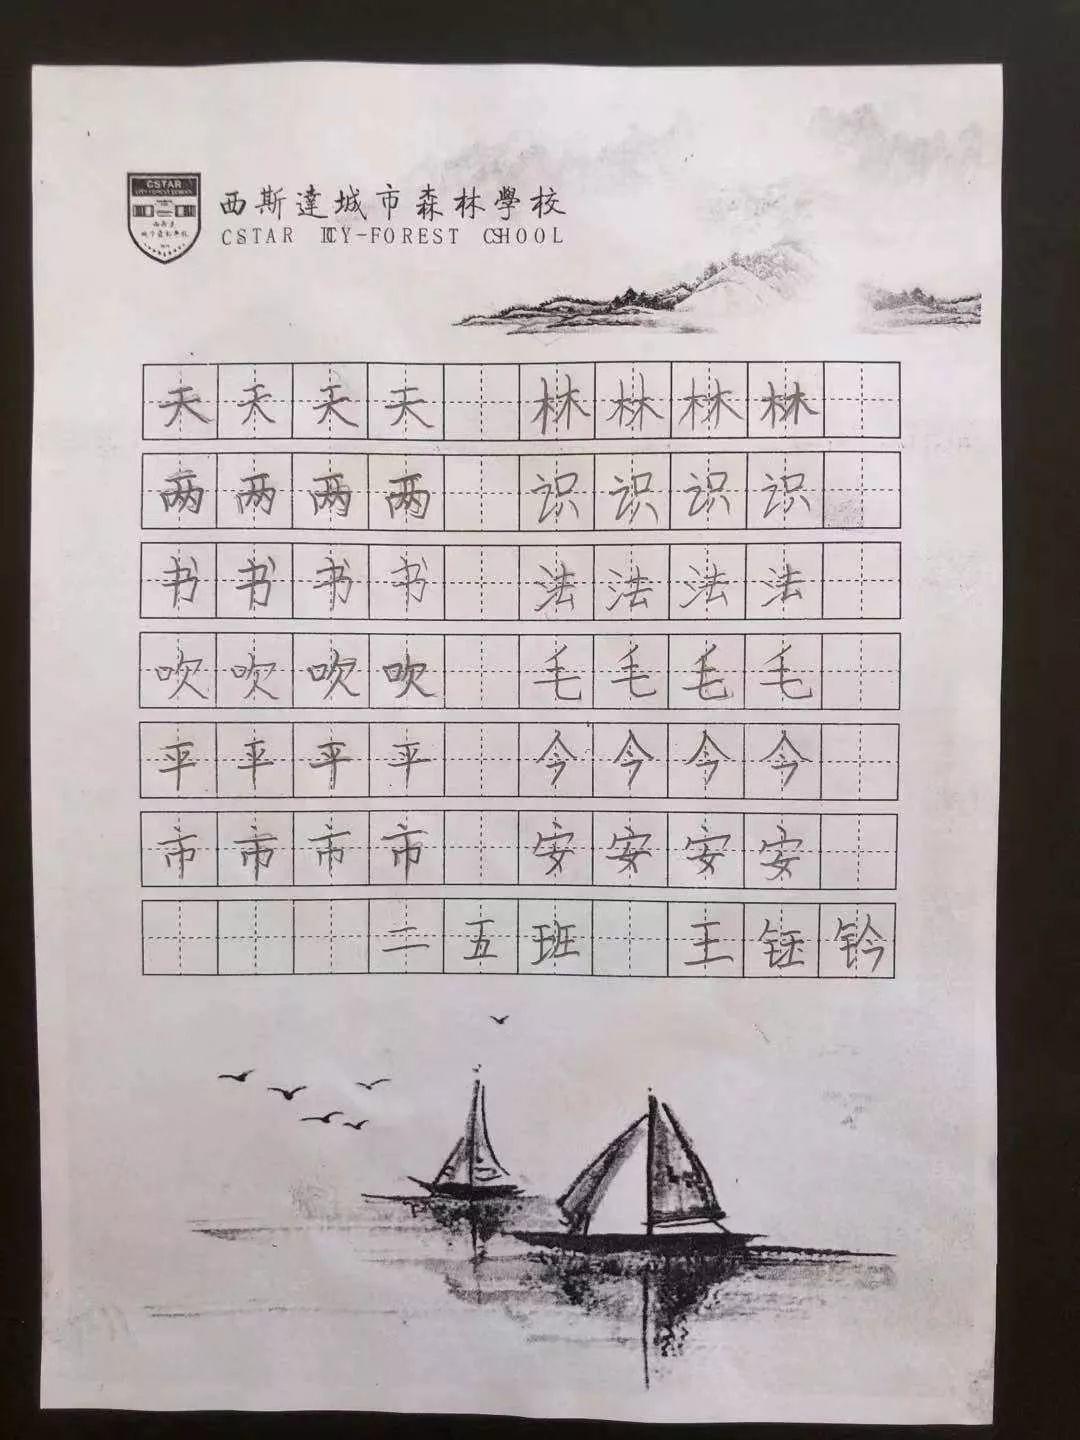 CSTAR
西斯達城市森林學校
CSTAR ICTY-FOREST CSHOOL
天天天天 林林林林
两两两两 识识识识
书书书书 法法法法
吹吹吹吹 毛毛毛毛
平平平平 今今今今
市市市市 安安安安
二五班 王钰钤